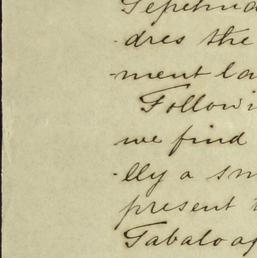 Tepehua
dres the
ment la
Followi
we find
lly a sm
present t
Tabaloap